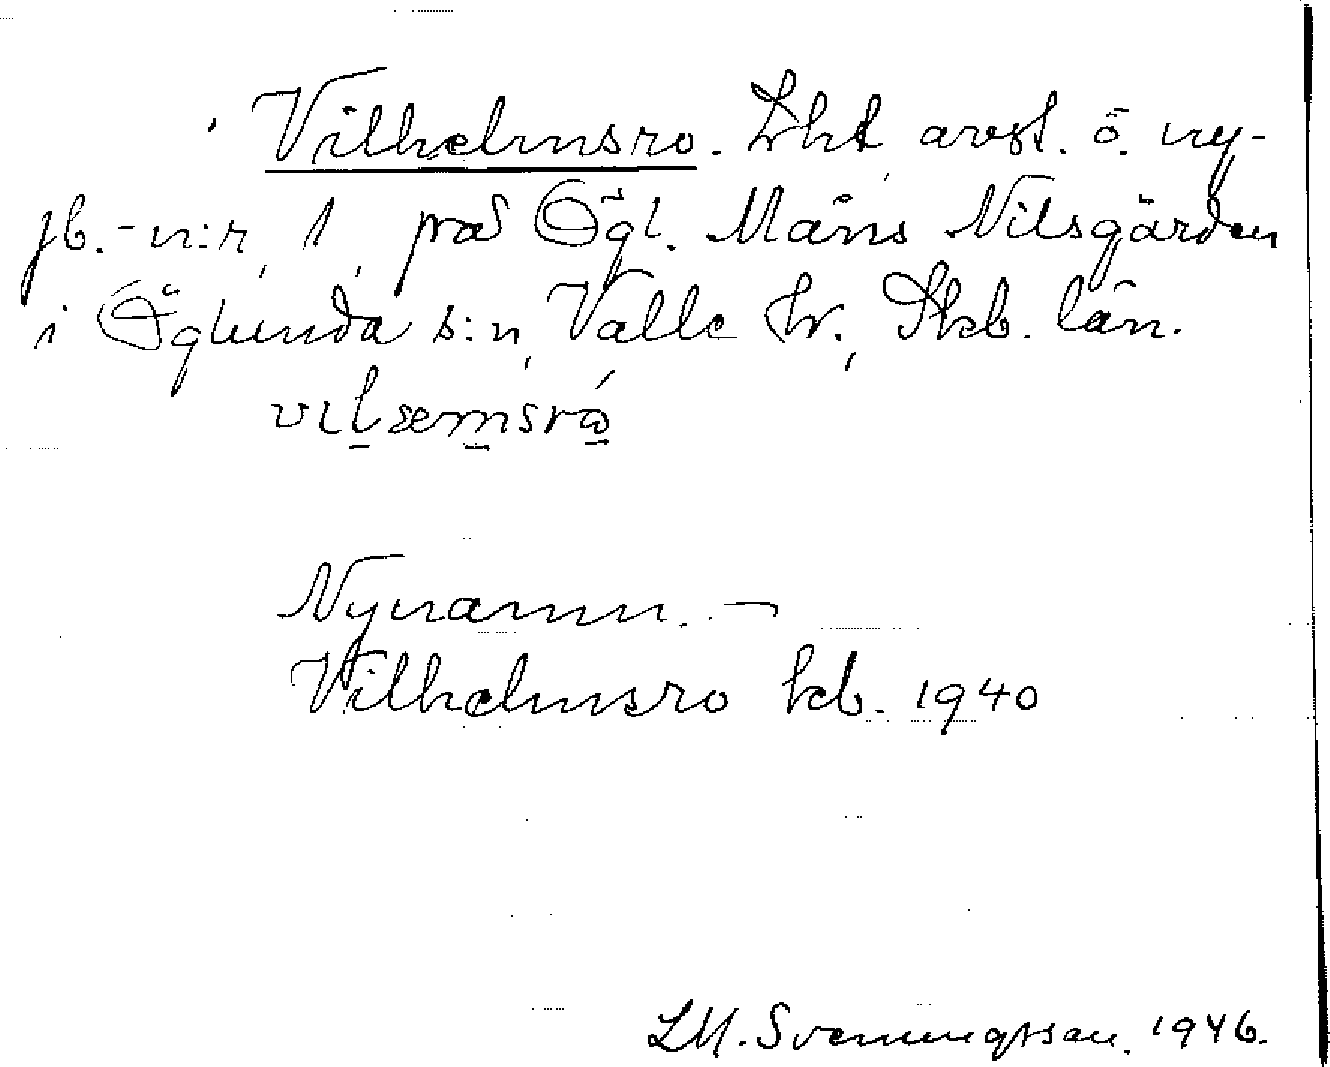 Vilhelmsro. Lht, avst. ö. ny-
jb.-n:r, 1, på Ögl. Måns Nilsgården
i Öglunda s:n, Valle hr., Skb. län.
Nynamn. —
Vilhelmsro kb. 1940
LM. Svenungsson. 1946.